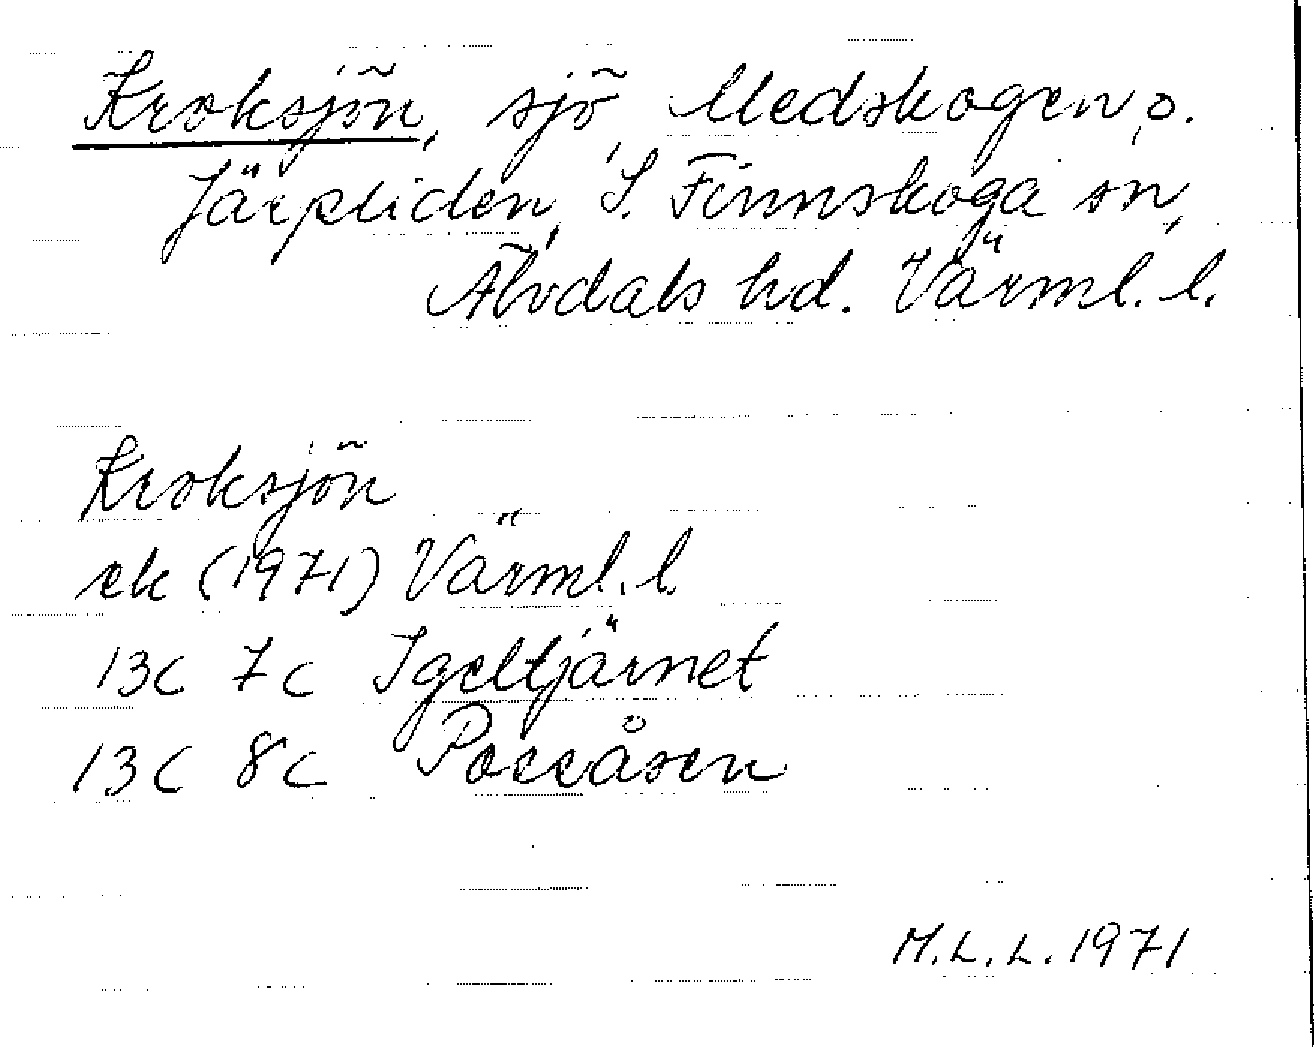 Kroksjön, sjö, Medskogen o.
Järpliden, S. Finnskoga sn,
Älvdals hd. Värml. l.
Kroksjön
ek (1971) Värml. l.
13C 7c Igeltjärnet
13C 8c Possåsen
M.L.L. 1971